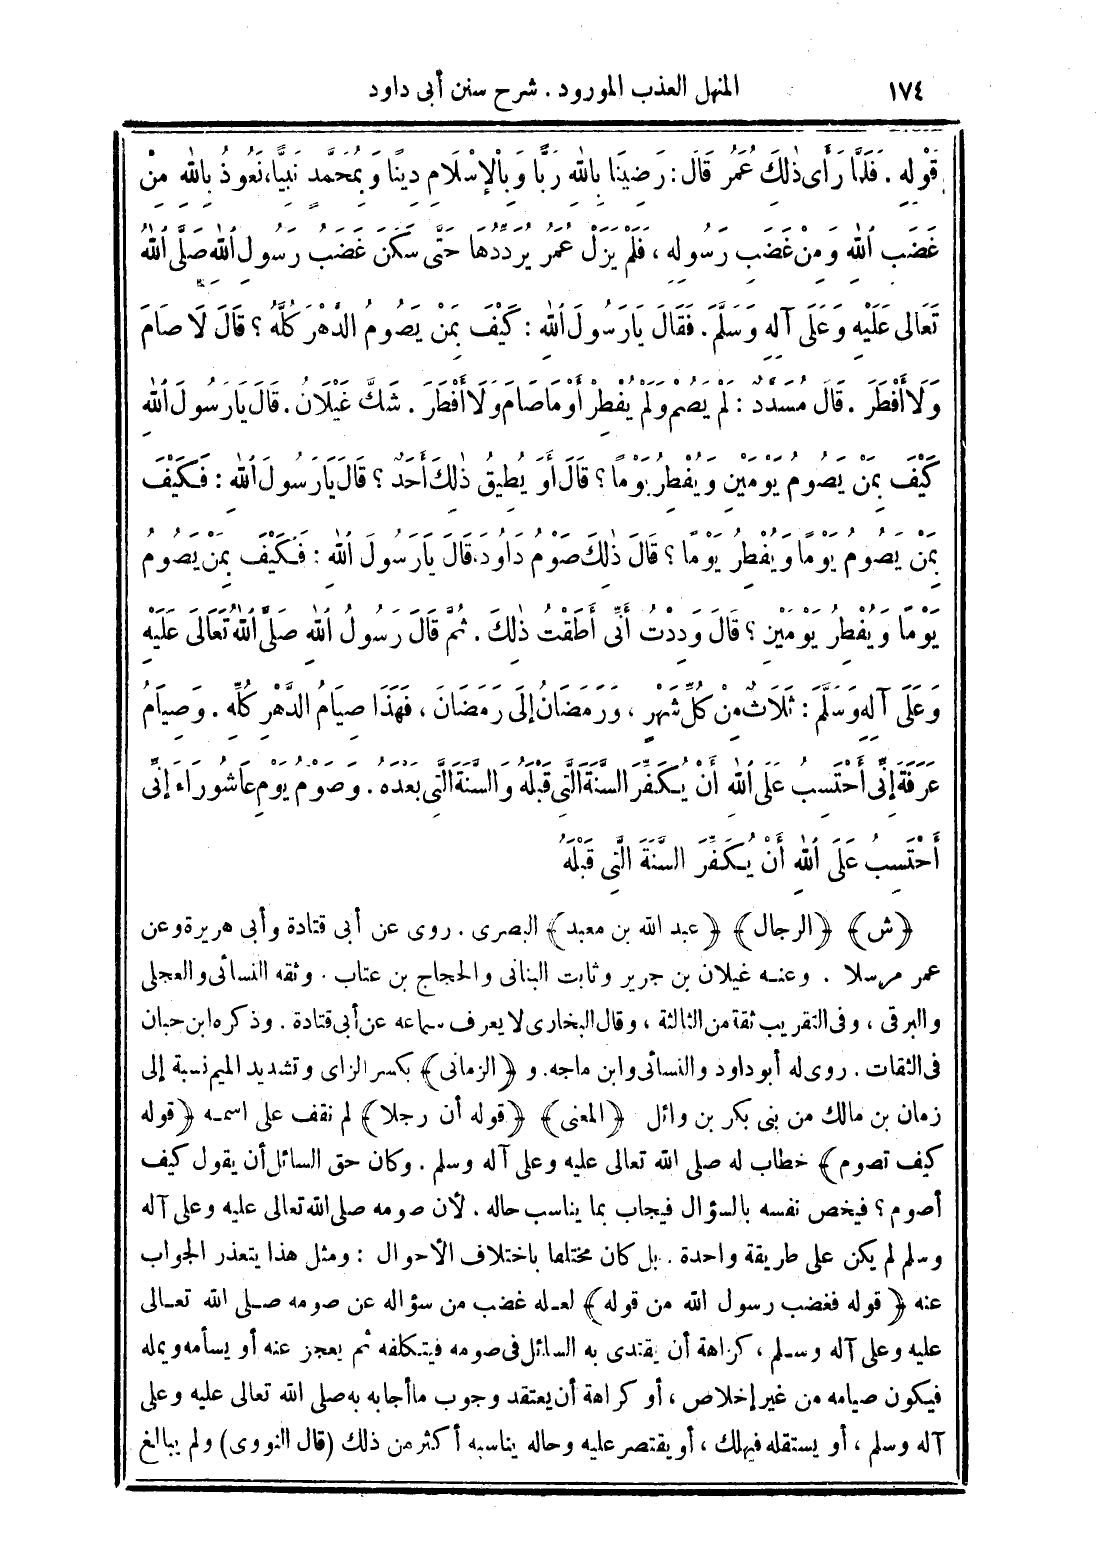 ١٧٤ المنهل العذب المورود . شرح سنن أبى داود
قَوْلِهِ . فَلَمَّا رَأَى ذٰلِكَ عُمَرُ قَالَ : رَضِينَا بِاللهِ رَبًّا وَبِالْإِسْلَامِ دِينًا وَبِمُحَمَّدٍ نَبِيًّا، نَعُوذُ بِاللهِ مِنْ
غَضَبِ اللهِ وَمِنْ غَضَبِ رَسُولِهِ ، فَلَمْ يَزَلْ عُمَرُ يُرَدِّدُهَا حَتَّى سَكَنَ غَضَبُ رَسُولِ اللهِ صَلَّى اللهُ
تَعَالَى عَلَيْهِ وَعَلَى آلِهِ وَسَلَّمَ . فَقَالَ يَارَسُولَ اللهِ : كَيْفَ بِمَنْ يَصُومُ الدَّهْرَ كُلَّهُ ؟ قَالَ لَا صَامَ
وَلَا أَفْطَرَ . قَالَ مُسَدَّدٌ : لَمْ يَصُمْ وَلَمْ يُفْطِرْ أَوْ مَا صَامَ وَلَا أَفْطَرَ . شَكَّ غَيْلَانُ . قَالَ يَارَسُولَ اللهِ
كَيْفَ بِمَنْ يَصُومُ يَوْمَيْنِ وَيُفْطِرُ يَوْمًا ؟ قَالَ أَوَ يُطِيقُ ذٰلِكَ أَحَدٌ ؟ قَالَ يَارَسُولَ اللهِ : فَكَيْفَ
بِمَنْ يَصُومُ يَوْمًا وَيُفْطِرُ يَوْمًا ؟ قَالَ ذٰلِكَ صَوْمُ دَاوُدَ . قَالَ يَارَسُولَ اللهِ : فَكَيْفَ بِمَنْ يَصُومُ
يَوْمًا وَيُفْطِرُ يَوْمَيْنِ ؟ قَالَ وَدِدْتُ أَنِّى أُطِقْتُ ذٰلِكَ . ثُمَّ قَالَ رَسُولُ اللهِ صَلَّى اللهُ تَعَالَى عَلَيْهِ
وَعَلَى آلِهِ وَسَلَّمَ : ثَلَاثٌ مِنْ كُلِّ شَهْرٍ ، وَرَمَضَانُ إِلَى رَمَضَانَ ، فَهَذَا صِيَامُ الدَّهْرِ كُلِّهِ . وَصِيَامُ
عَرَفَةَ إِنِّى أَحْتَسِبُ عَلَى اللهِ أَنْ يُكَفِّرَ السَّنَةَ الَّتِى قَبْلَهُ وَالسَّنَةَ الَّتِى بَعْدَهُ . وَصَوْمُ يَوْمِ عَاشُورَاءَ إِنِّى
أَحْتَسِبُ عَلَى اللهِ أَنْ يُكَفِّرَ السَّنَةَ الَّتِى قَبْلَهُ
﴿ش﴾ ﴿الرجال﴾ ﴿عبد الله بن معبد﴾ البصرى . روى عن أبى قتادة وأبى هريرة وعن
عمر مرسلا . وعنه غيلان بن جرير وثابت البنانى والحجاج بن عتاب . وثقه النسائى والعجلى
والبرقى ، وفى التقريب ثقة من الثالثة ، وقال البخارى لا يعرف سماعه عن أبى قتادة . وذكره ابن حبان
فى الثقات . روى له أبو داود والنسائى وابن ماجه. و ﴿الزمانى﴾ بكسر الزاى وتشديد الميم نسبة إلى
زمان بن مالك من بنى بكر بن وائل ﴿المعنى﴾ ﴿قوله أن رجلا﴾ لم نقف على اسمه ﴿قوله
كيف تصوم﴾ خطاب له صلى الله تعالى عليه وعلى آله وسلم . وكان حق السائل أن يقول كيف
أصوم ؟ فيخص نفسه بالسؤال فيجاب بما يناسب حاله . لأن صومه صلى الله تعالى عليه وعلى آله
وسلم لم يكن على طريقة واحدة . بل كان مختلفا باختلاف الأحوال : ومثل هذا يتعذر الجواب
عنه ﴿قوله فغضب رسول الله من قوله﴾ لعله غضب من سؤاله عن صومه صلى الله تعالى
عليه وعلى آله وسلم ، كراهة أن يقتدى به السائل فى صومه فيتكلفه ثم يعجز عنه أو يسأمه ويمله
فيكون صيامه من غير إخلاص ، أو كراهة أن يعتقد وجوب ما أجابه به صلى الله تعالى عليه وعلى
آله وسلم ، أو يستقله فيهلك ، أو يقتصر عليه وحاله يناسبه أكثر من ذلك (قال النووى) ولم يبالغ